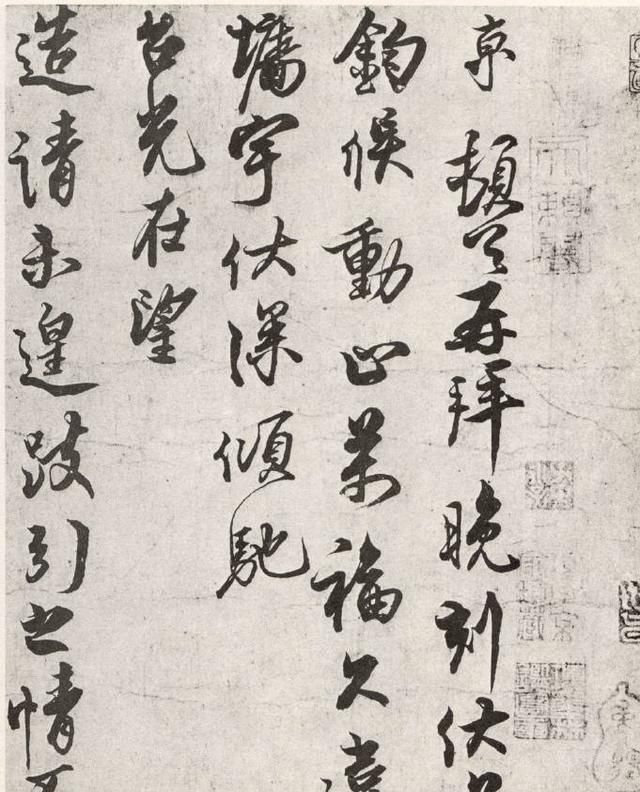 京 頓首再拜晚刻伏
鈞候動止萬福久
墻宇伏深傾馳
台光在望
造請未遑跂引之情